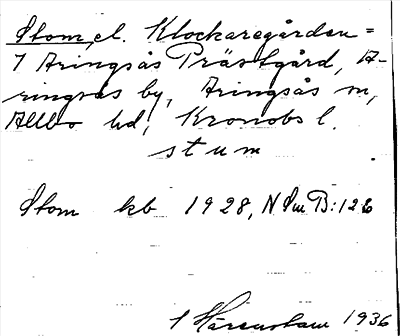 Stom, el. Klockaregården =
7 Aringsås Prästgård, A-
ringsås by, Aringsås sn,
Allbo hd, Kronobs l.
stum
Stom kb 1928, N Sm B:126
1936